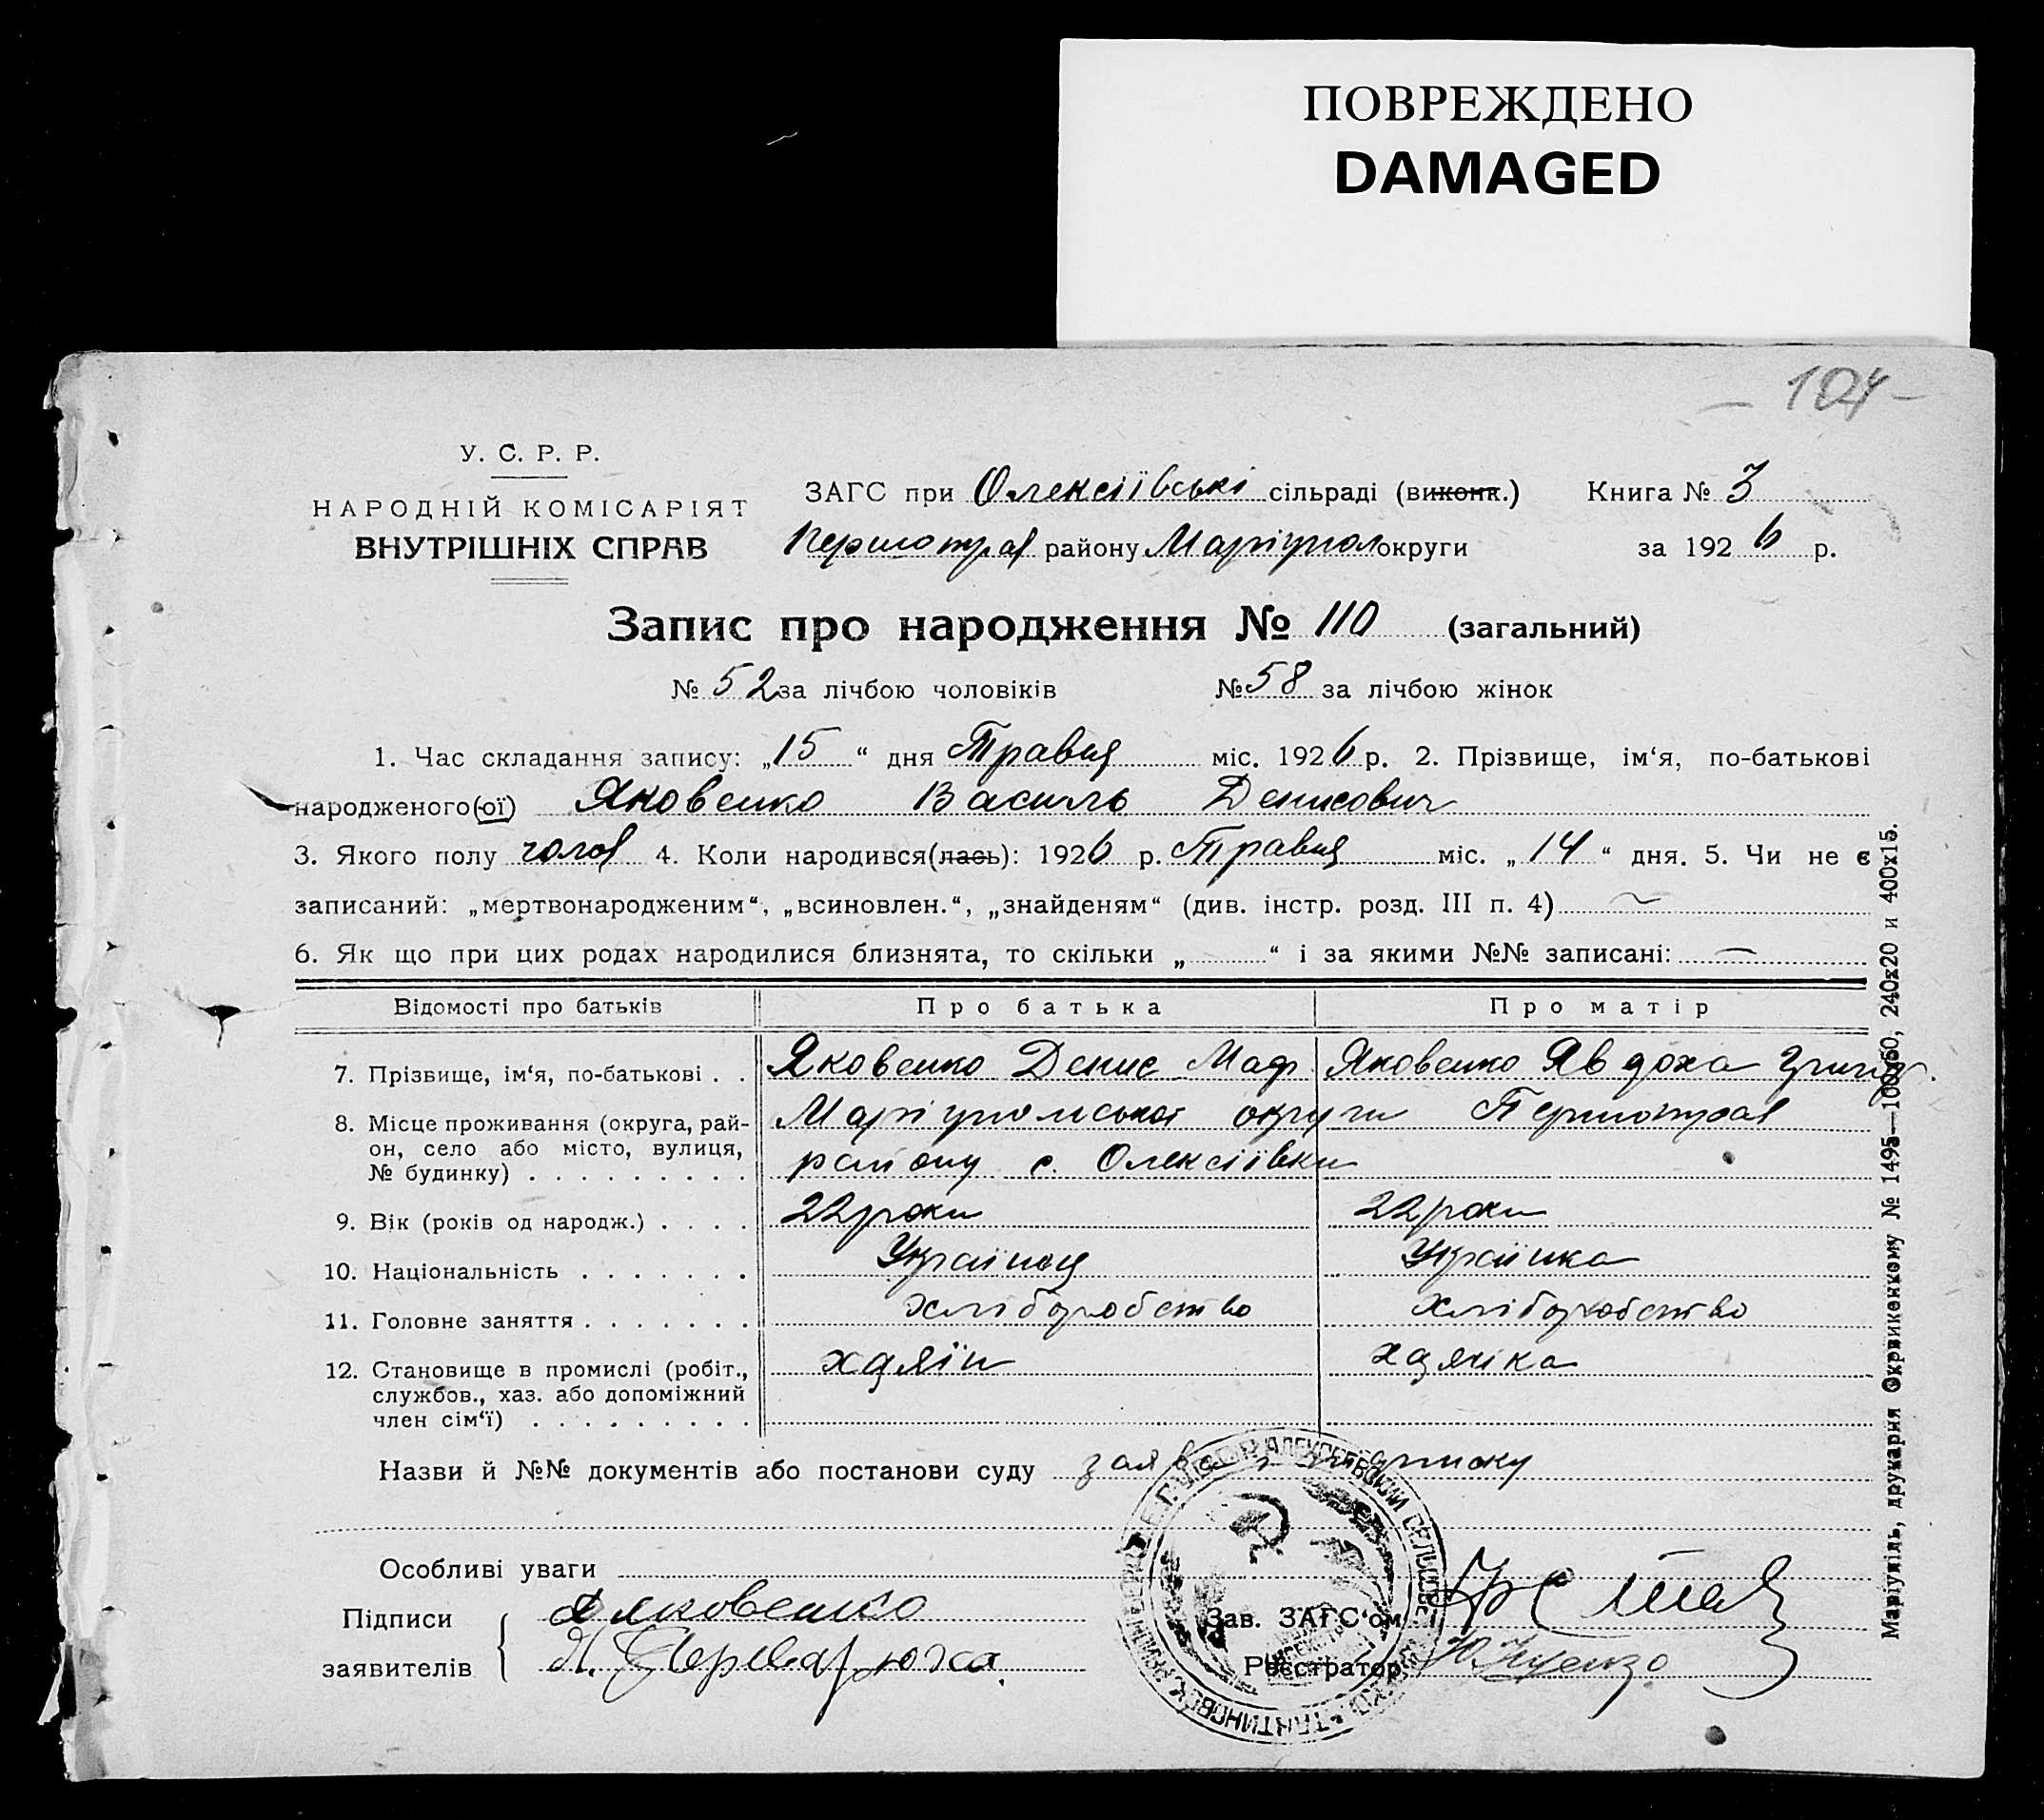 ПОВРЕЖДЕНО
DAMAGED
– 104 –
У. С. Р. Р.
НАРОДНІЙ КОМІСАРІЯТ
ВНУТРІШНІХ СПРАВ
ЗАГС при Олексіївські сільраді (виконк.) Книга № 3
Першотрав району Маріупол округи за 1926 р.
Запис про народження № 110 (загальний)
№ 52 за лічбою чоловіків № 58 за лічбою жінок
1. Час складання запису: „15“ дня Травня міс. 1926 р. 2. Прізвище, ім‘я, по-батькові
народженого(ої) Яковенко Василь Денисович
3. Якого полу чолов 4. Коли народився(лась): 1926 р. Травня міс. „14“ дня. 5. Чи не є
записаний: „мертвонародженим“, „всиновлен.“, „знайденям“ (див. інстр. розд. III п. 4) ~
6. Як що при цих родах народилися близнята, то скільки „ “ і за якими №№ записані: —
Відомості про батьків Про батька Про матір
7. Прізвище, ім‘я, по-батькові . . Яковенко Денис Маф Яковенко Явдоха Григор.
8. Місце проживання (округа, рай-
он, село або місто, вулиця,
№ будинку) . . . . . . . . .
Маріупольської округи Першотрав
району с. Олексіївки
9. Вік (років од народж.) . . . . 22 роки 22 роки
10. Національність . . . . . . . Українец Українка
11. Головне заняття . . . . . . . хліборобство хліборобство
12. Становище в промислі (робіт.,
службов., хаз. або допоміжний
член сім‘ї) . . . . . . . . .
хазяїн хазяїка
Назви й №№ документів або постанови суду заява
Особливі уваги
Підписи
заявителів
Яковенко
Зав. ЗАГС‘ом
Реєстратор
Маріупіль, друкарня Окрвиконкому № 1495—100х50, 240х20 и 400х15.